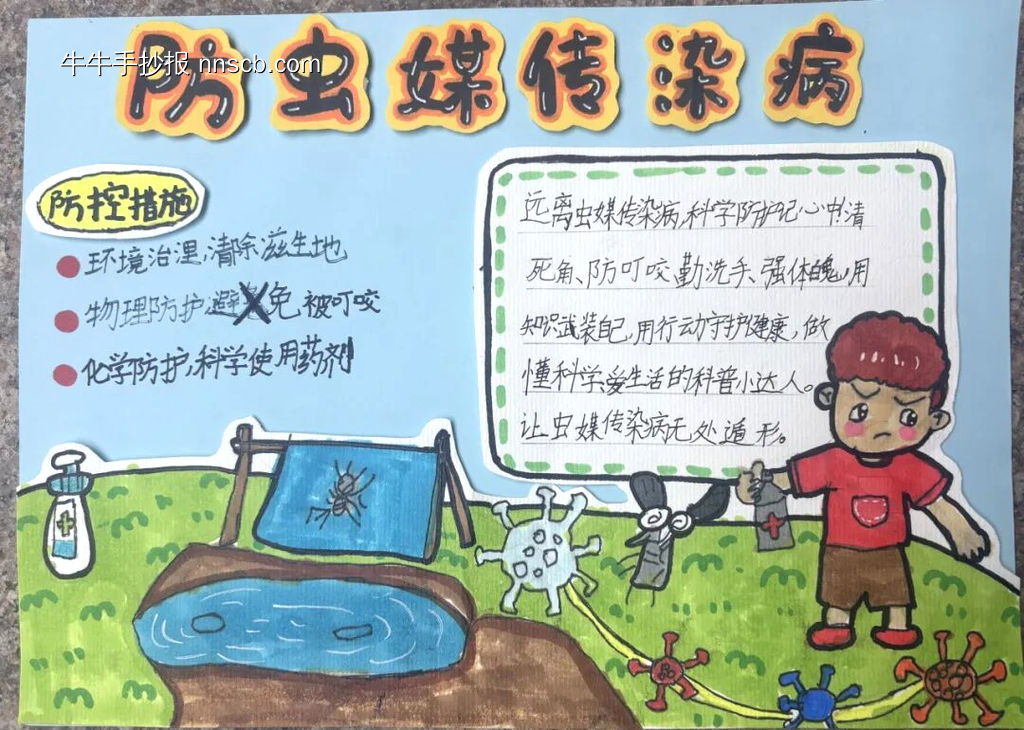 牛牛手抄报 nnscb.com
防虫媒传染病
防控措施
环境治理,清除滋生地
物理防护避免被叮咬
化学防护,科学使用药剂
远离虫媒传染病,科学防护记心中清
死角、防叮咬、勤洗手、强体魄,用
知识武装自己,用行动守护健康,做
懂科学、爱生活的科普小达人。
让虫媒传染病无处遁形。